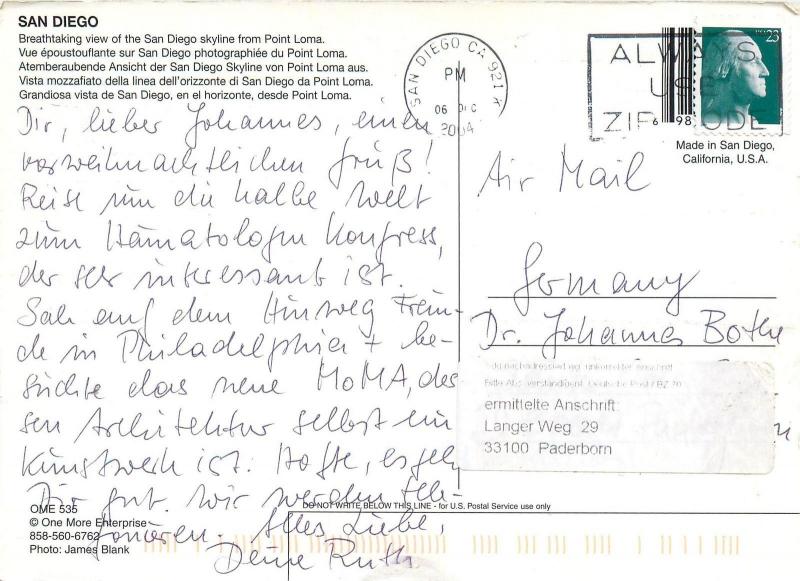 SAN DIEGO
Breathtaking view of the San Diego skyline from Point Loma.
Vue époustouflante sur San Diego photographiée du Point Loma.
Atemberaubende Ansicht der San Diego Skyline von Point Loma aus.
Vista mozzafiato della linea dell'orizzonte di San Diego da Point Loma.
Grandiosa vista de San Diego, en el horizonte, desde Point Loma.
Dir, lieber Johannes, einen
vorweihnachtlichen Gruß!
Reise um die halbe Welt
zum Hämatologen Kongress,
der sehr interessant ist.
Sah auf dem Hinweg Freun-
de in Philadelphia + be-
suchte das neue MoMA, des
sen Architektur selbst ein
Kunstwerk ist. Hoffe, es geht
Dir gut. Wir werden tele-
fonieren. Alles Liebe,
Deine Ruth
OME 535
© One More Enterprise
858-560-6762
Photo: James Blank
SAN DIEGO CA 921
PM
06
2004
ALWAYS
USE
ZIP CODE
23
6 98
Made in San Diego,
California, U.S.A.
Air Mail
Germany
Dr. Johannes Bothe
ermittelte Anschrift:
Langer Weg 29
33100 Paderborn
DO NOT WRITE BELOW THIS LINE - for U.S. Postal Service use only